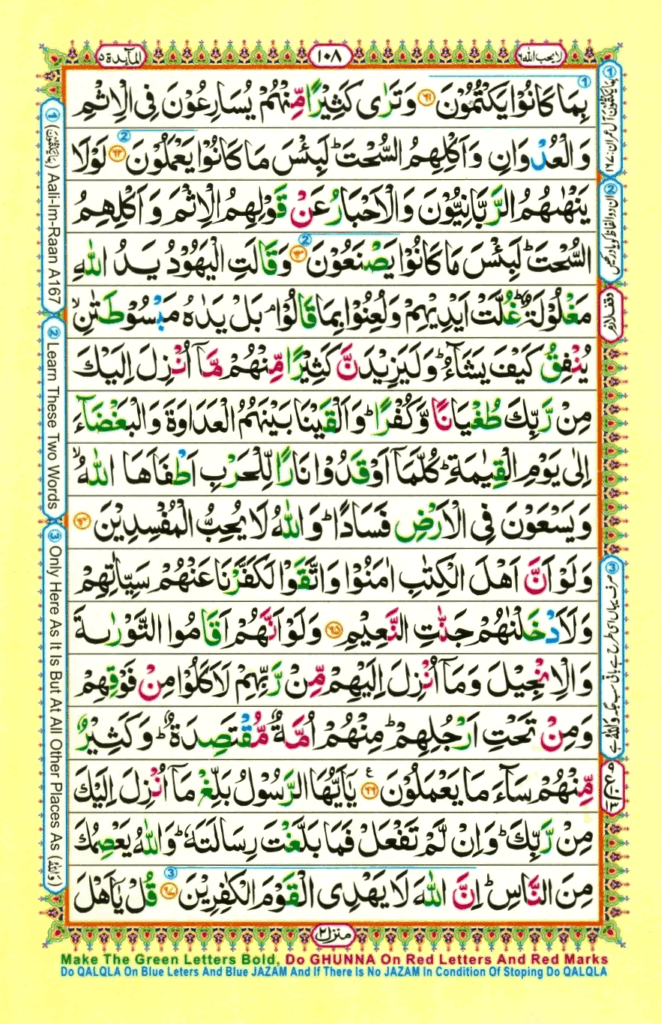 المآىدة ٥
١٠٨
لا يحب الله ٦
بِمَا كَانُوْا يَكْتُمُوْنَ ﴿٦١﴾ وَتَرٰى كَثِيْرًا مِّنْهُمْ يُسَارِعُوْنَ فِى الْاِثْمِ
وَالْعُدْوَانِ وَاَكْلِهِمُ السُّحْتَ ؕ لَبِئْسَ مَا كَانُوْا يَعْمَلُوْنَ ﴿٦٢﴾ لَوْلَا
يَنْهٰىهُمُ الرَّبّٰنِيُّوْنَ وَالْاَحْبَارُ عَنْ قَوْلِهِمُ الْاِثْمَ وَاَكْلِهِمُ
السُّحْتَ ؕ لَبِئْسَ مَا كَانُوْا يَصْنَعُوْنَ ﴿٦٣﴾ وَقَالَتِ الْيَهُوْدُ يَدُ اللّٰهِ
مَغْلُوْلَةٌ ؕ غُلَّتْ اَيْدِيْهِمْ وَلُعِنُوْا بِمَا قَالُوْا ۘ بَلْ يَدٰهُ مَبْسُوْطَتٰنِ ۙ
يُنْفِقُ كَيْفَ يَشَآءُ ؕ وَلَيَزِيْدَنَّ كَثِيْرًا مِّنْهُمْ مَّاۤ اُنْزِلَ اِلَيْكَ
مِنْ رَّبِّكَ طُغْيَانًا وَّكُفْرًا ؕ وَاَلْقَيْنَا بَيْنَهُمُ الْعَدَاوَةَ وَالْبَغْضَآءَ
اِلٰى يَوْمِ الْقِيٰمَةِ ؕ كُلَّمَاۤ اَوْقَدُوْا نَارًا لِّلْحَرْبِ اَطْفَاَهَا اللّٰهُ ۙ
وَيَسْعَوْنَ فِى الْاَرْضِ فَسَادًا ؕ وَاللّٰهُ لَا يُحِبُّ الْمُفْسِدِيْنَ ﴿٦٤﴾
وَلَوْ اَنَّ اَهْلَ الْكِتٰبِ اٰمَنُوْا وَاتَّقَوْا لَكَفَّرْنَا عَنْهُمْ سَيِّاٰتِهِمْ
وَلَاَدْخَلْنٰهُمْ جَنّٰتِ النَّعِيْمِ ﴿٦٥﴾ وَلَوْ اَنَّهُمْ اَقَامُوا التَّوْرٰىةَ
وَالْاِنْجِيْلَ وَمَاۤ اُنْزِلَ اِلَيْهِمْ مِّنْ رَّبِّهِمْ لَاَكَلُوْا مِنْ فَوْقِهِمْ
وَمِنْ تَحْتِ اَرْجُلِهِمْ ؕ مِنْهُمْ اُمَّةٌ مُّقْتَصِدَةٌ ؕ وَكَثِيْرٌ
مِّنْهُمْ سَآءَ مَا يَعْمَلُوْنَ ﴿٦٦﴾ ع يٰۤاَيُّهَا الرَّسُوْلُ بَلِّغْ مَاۤ اُنْزِلَ اِلَيْكَ
مِنْ رَّبِّكَ ؕ وَاِنْ لَّمْ تَفْعَلْ فَمَا بَلَّغْتَ رِسَالَتَهٗ ؕ وَاللّٰهُ يَعْصِمُكَ
مِنَ النَّاسِ ؕ اِنَّ اللّٰهَ لَا يَهْدِى الْقَوْمَ الْكٰفِرِيْنَ ﴿٦٧﴾ قُلْ يٰۤاَهْلَ
منزل ٢
① (بما يكتمون) Aali-Im-Raan A167
② Learn These Two Words
③ Only Here As It Is But At All Other Places As (والله)
① بما يكتمون آل عمران ١٦٧
② ان دو الفاظ کو یاد رکھیں
وقف لازم
Make The Green Letters Bold, Do GHUNNA On Red Letters And Red Marks
Do QALQLA On Blue Leters And Blue JAZAM And If There Is No JAZAM In Condition Of Stoping Do QALQLA